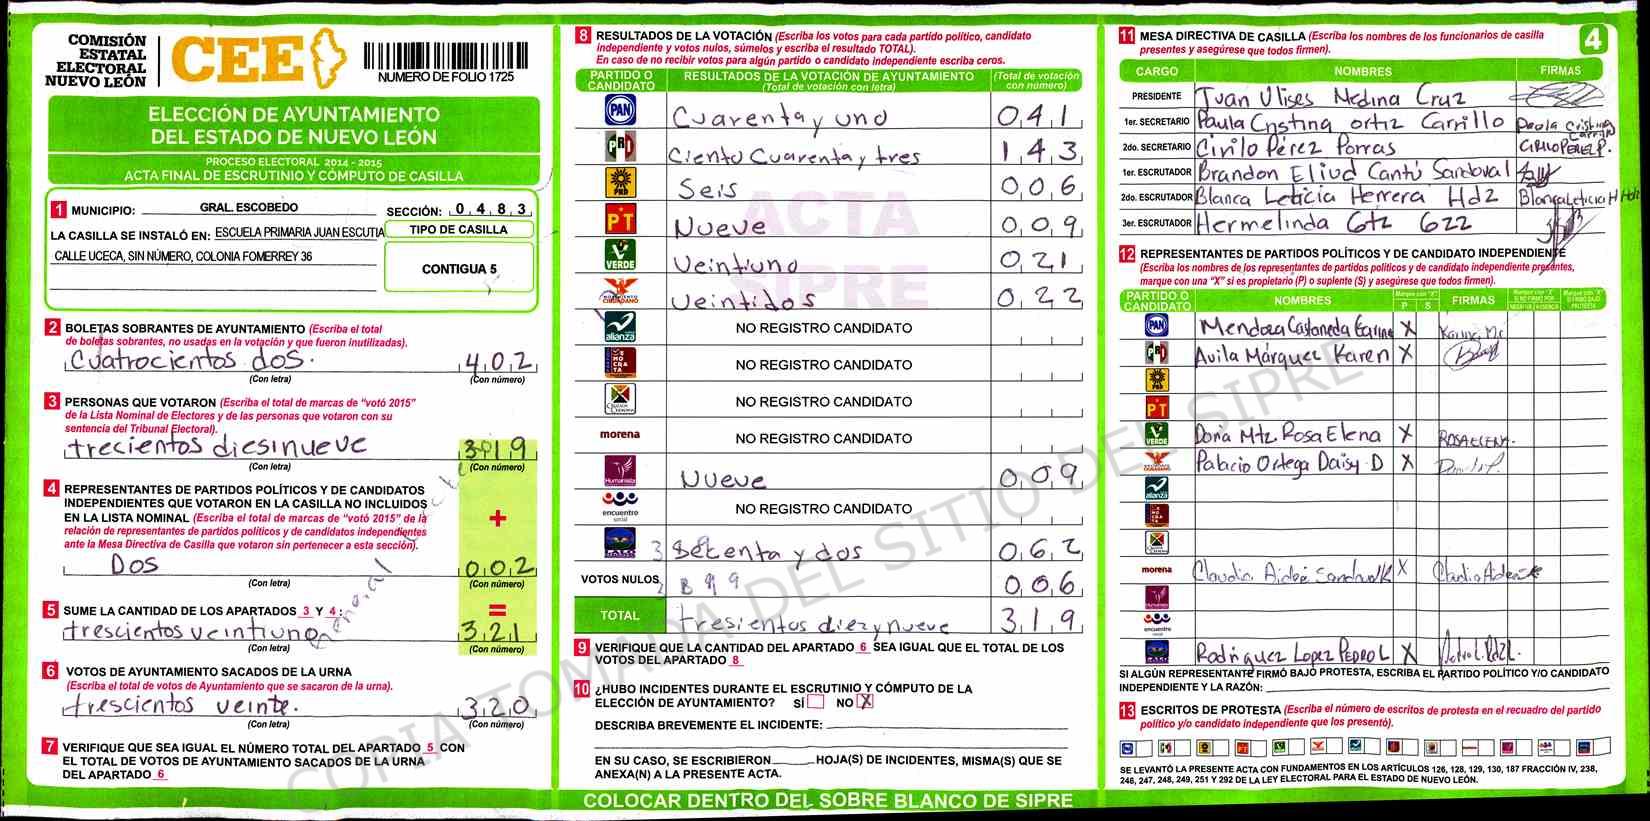 COMISIÓN
ESTATAL
ELECTORAL
NUEVO LEÓN
CEE
NUMERO DE FOLIO 1725
ELECCIÓN DE AYUNTAMIENTO
DEL ESTADO DE NUEVO LEÓN
PROCESO ELECTORAL 2014 - 2015
ACTA FINAL DE ESCRUTINIO Y CÓMPUTO DE CASILLA
1 MUNICIPIO: GRAL. ESCOBEDO SECCIÓN: 0 4 8 3
LA CASILLA SE INSTALÓ EN: ESCUELA PRIMARIA JUAN ESCUTIA
CALLE UCECA, SIN NÚMERO, COLONIA FOMERREY 36
TIPO DE CASILLA
CONTIGUA 5
2 BOLETAS SOBRANTES DE AYUNTAMIENTO (Escriba el total
de boletas sobrantes, no usadas en la votación y que fueron inutilizadas).
Cuatrocientos dos. 4 0 2
(Con letra) (Con número)
3 PERSONAS QUE VOTARON (Escriba el total de marcas de "votó 2015"
de la Lista Nominal de Electores y de las personas que votaron con su
sentencia del Tribunal Electoral).
trecientos diesinueve 3 1 9
(Con letra) (Con número)
4 REPRESENTANTES DE PARTIDOS POLÍTICOS Y DE CANDIDATOS
INDEPENDIENTES QUE VOTARON EN LA CASILLA NO INCLUIDOS
EN LA LISTA NOMINAL (Escriba el total de marcas de "votó 2015" de la
relación de representantes de partidos políticos y de candidatos independientes
ante la Mesa Directiva de Casilla que votaron sin pertenecer a esta sección).
+
Dos 0 0 2
(Con letra) (Con número)
5 SUME LA CANTIDAD DE LOS APARTADOS 3 Y 4: =
trescientos veintiuno 3 2 1
(Con letra) (Con número)
6 VOTOS DE AYUNTAMIENTO SACADOS DE LA URNA
(Escriba el total de votos de Ayuntamiento que se sacaron de la urna).
trescientos veinte. 3 2 0
(Con letra) (Con número)
7 VERIFIQUE QUE SEA IGUAL EL NÚMERO TOTAL DEL APARTADO 5 CON
EL TOTAL DE VOTOS DE AYUNTAMIENTO SACADOS DE LA URNA
DEL APARTADO 6
8 RESULTADOS DE LA VOTACIÓN (Escriba los votos para cada partido político, candidato
independiente y votos nulos, súmelos y escriba el resultado TOTAL).
En caso de no recibir votos para algún partido o candidato independiente escriba ceros.
PARTIDO O CANDIDATO RESULTADOS DE LA VOTACIÓN DE AYUNTAMIENTO (Total de votación con letra) (Total de votación con número)
PAN Cuarenta y uno 0 4 1
PRD Ciento Cuarenta y tres 1 4 3
PRD Seis 0 0 6
PT Nueve 0 0 9
VERDE Veintiuno 0 2 1
CIUDADANO Veintidos 0 2 2
alianza NO REGISTRO CANDIDATO
NO REGISTRO CANDIDATO
NO REGISTRO CANDIDATO
morena NO REGISTRO CANDIDATO
Humanista Nueve 0 0 9
encuentro social NO REGISTRO CANDIDATO
Secenta y dos 0 6 2
VOTOS NULOS 0 0 6
TOTAL tresientos diez y nueve 3 1 9
ACTA
SIPRE
9 VERIFIQUE QUE LA CANTIDAD DEL APARTADO 6 SEA IGUAL QUE EL TOTAL DE LOS
VOTOS DEL APARTADO 8
10 ¿HUBO INCIDENTES DURANTE EL ESCRUTINIO Y CÓMPUTO DE LA
ELECCIÓN DE AYUNTAMIENTO? SÍ NO X
DESCRIBA BREVEMENTE EL INCIDENTE:
EN SU CASO, SE ESCRIBIERON HOJA(S) DE INCIDENTES, MISMA(S) QUE SE
ANEXA(N) A LA PRESENTE ACTA.
COLOCAR DENTRO DEL SOBRE BLANCO DE SIPRE
11 MESA DIRECTIVA DE CASILLA (Escriba los nombres de los funcionarios de casilla
presentes y asegúrese que todos firmen).
4
CARGO NOMBRES FIRMAS
PRESIDENTE Juan Ulises Medina Cruz
1er. SECRETARIO Paula Cristina Ortiz Carrillo Paula Cristina Carrillo
2do. SECRETARIO Cirilo Pérez Porras CIRILO PEREZ P.
1er. ESCRUTADOR Brandon Eliud Cantú Sandoval
2do. ESCRUTADOR Blanca Leticia Herrera Hdz Blanca Leticia H Hdz
3er. ESCRUTADOR Hermelinda Gtz Gzz
12 REPRESENTANTES DE PARTIDOS POLÍTICOS Y DE CANDIDATO INDEPENDIENTE
(Escriba los nombres de los representantes de partidos políticos y de candidato independiente presentes,
marque con una "X" si es propietario (P) o suplente (S) y asegúrese que todos firmen).
PARTIDO O CANDIDATO NOMBRES Marque con "X" P S FIRMAS
PAN Mendoza Castaneda Karina X
Avila Márquez Karen X
PRD
PT
VERDE Doria Mtz Rosa Elena X ROSA ELENA.
Palacio Ortega Daisy D X
alianza
morena Claudia Aideé Sandoval X
encuentro social
Rodriguez Lopez PEDRO L X
SI ALGÚN REPRESENTANTE FIRMÓ BAJO PROTESTA, ESCRIBA EL PARTIDO POLÍTICO Y/O CANDIDATO
INDEPENDIENTE Y LA RAZÓN:
13 ESCRITOS DE PROTESTA (Escriba el número de escritos de protesta en el recuadro del partido
político y/o candidato independiente que los presentó).
SE LEVANTÓ LA PRESENTE ACTA CON FUNDAMENTOS EN LOS ARTÍCULOS 126, 128, 129, 130, 187 FRACCIÓN IV, 238,
246, 247, 248, 249, 251 Y 292 DE LA LEY ELECTORAL PARA EL ESTADO DE NUEVO LEÓN.
COPIA TOMADA DEL SITIO DEL SIPRE